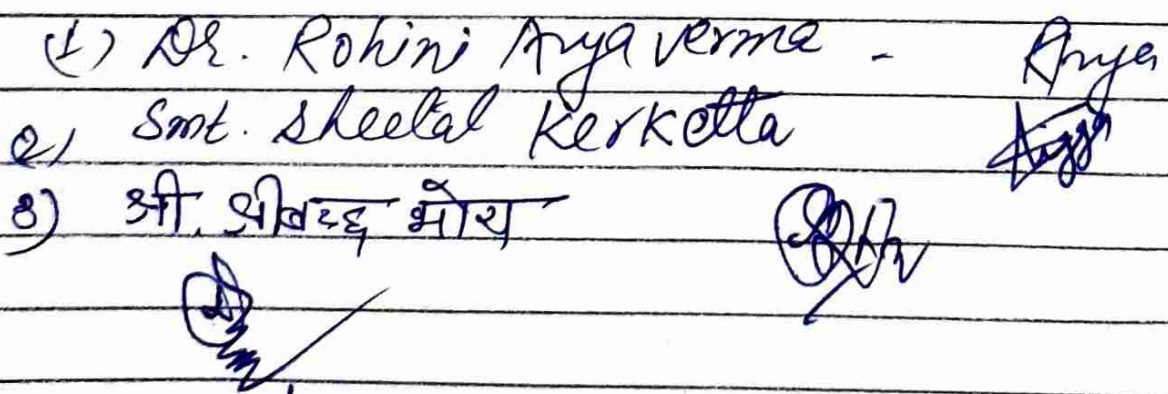 (1) Dr. Rohini Arya Verma - Arya
2) Smt. Sheetal Kerketta
3) श्री. श्रीवच्छ भोय